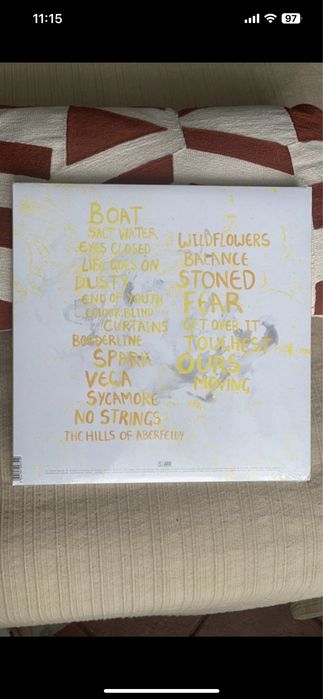 11:15
97
BOAT
SALT WATER
EYES CLOSED
LIFE GOES ON
DUSTY
END OF YOUTH
COLOUR BLIND
CURTAINS
BORDERLINE
SPARK
VEGA
SYCAMORE
NO STRINGS
THE HILLS OF ABERFELDY
WILDFLOWERS
BALANCE
STONED
FEAR
GET OVER IT
TOUGHEST
OURS
MOVING